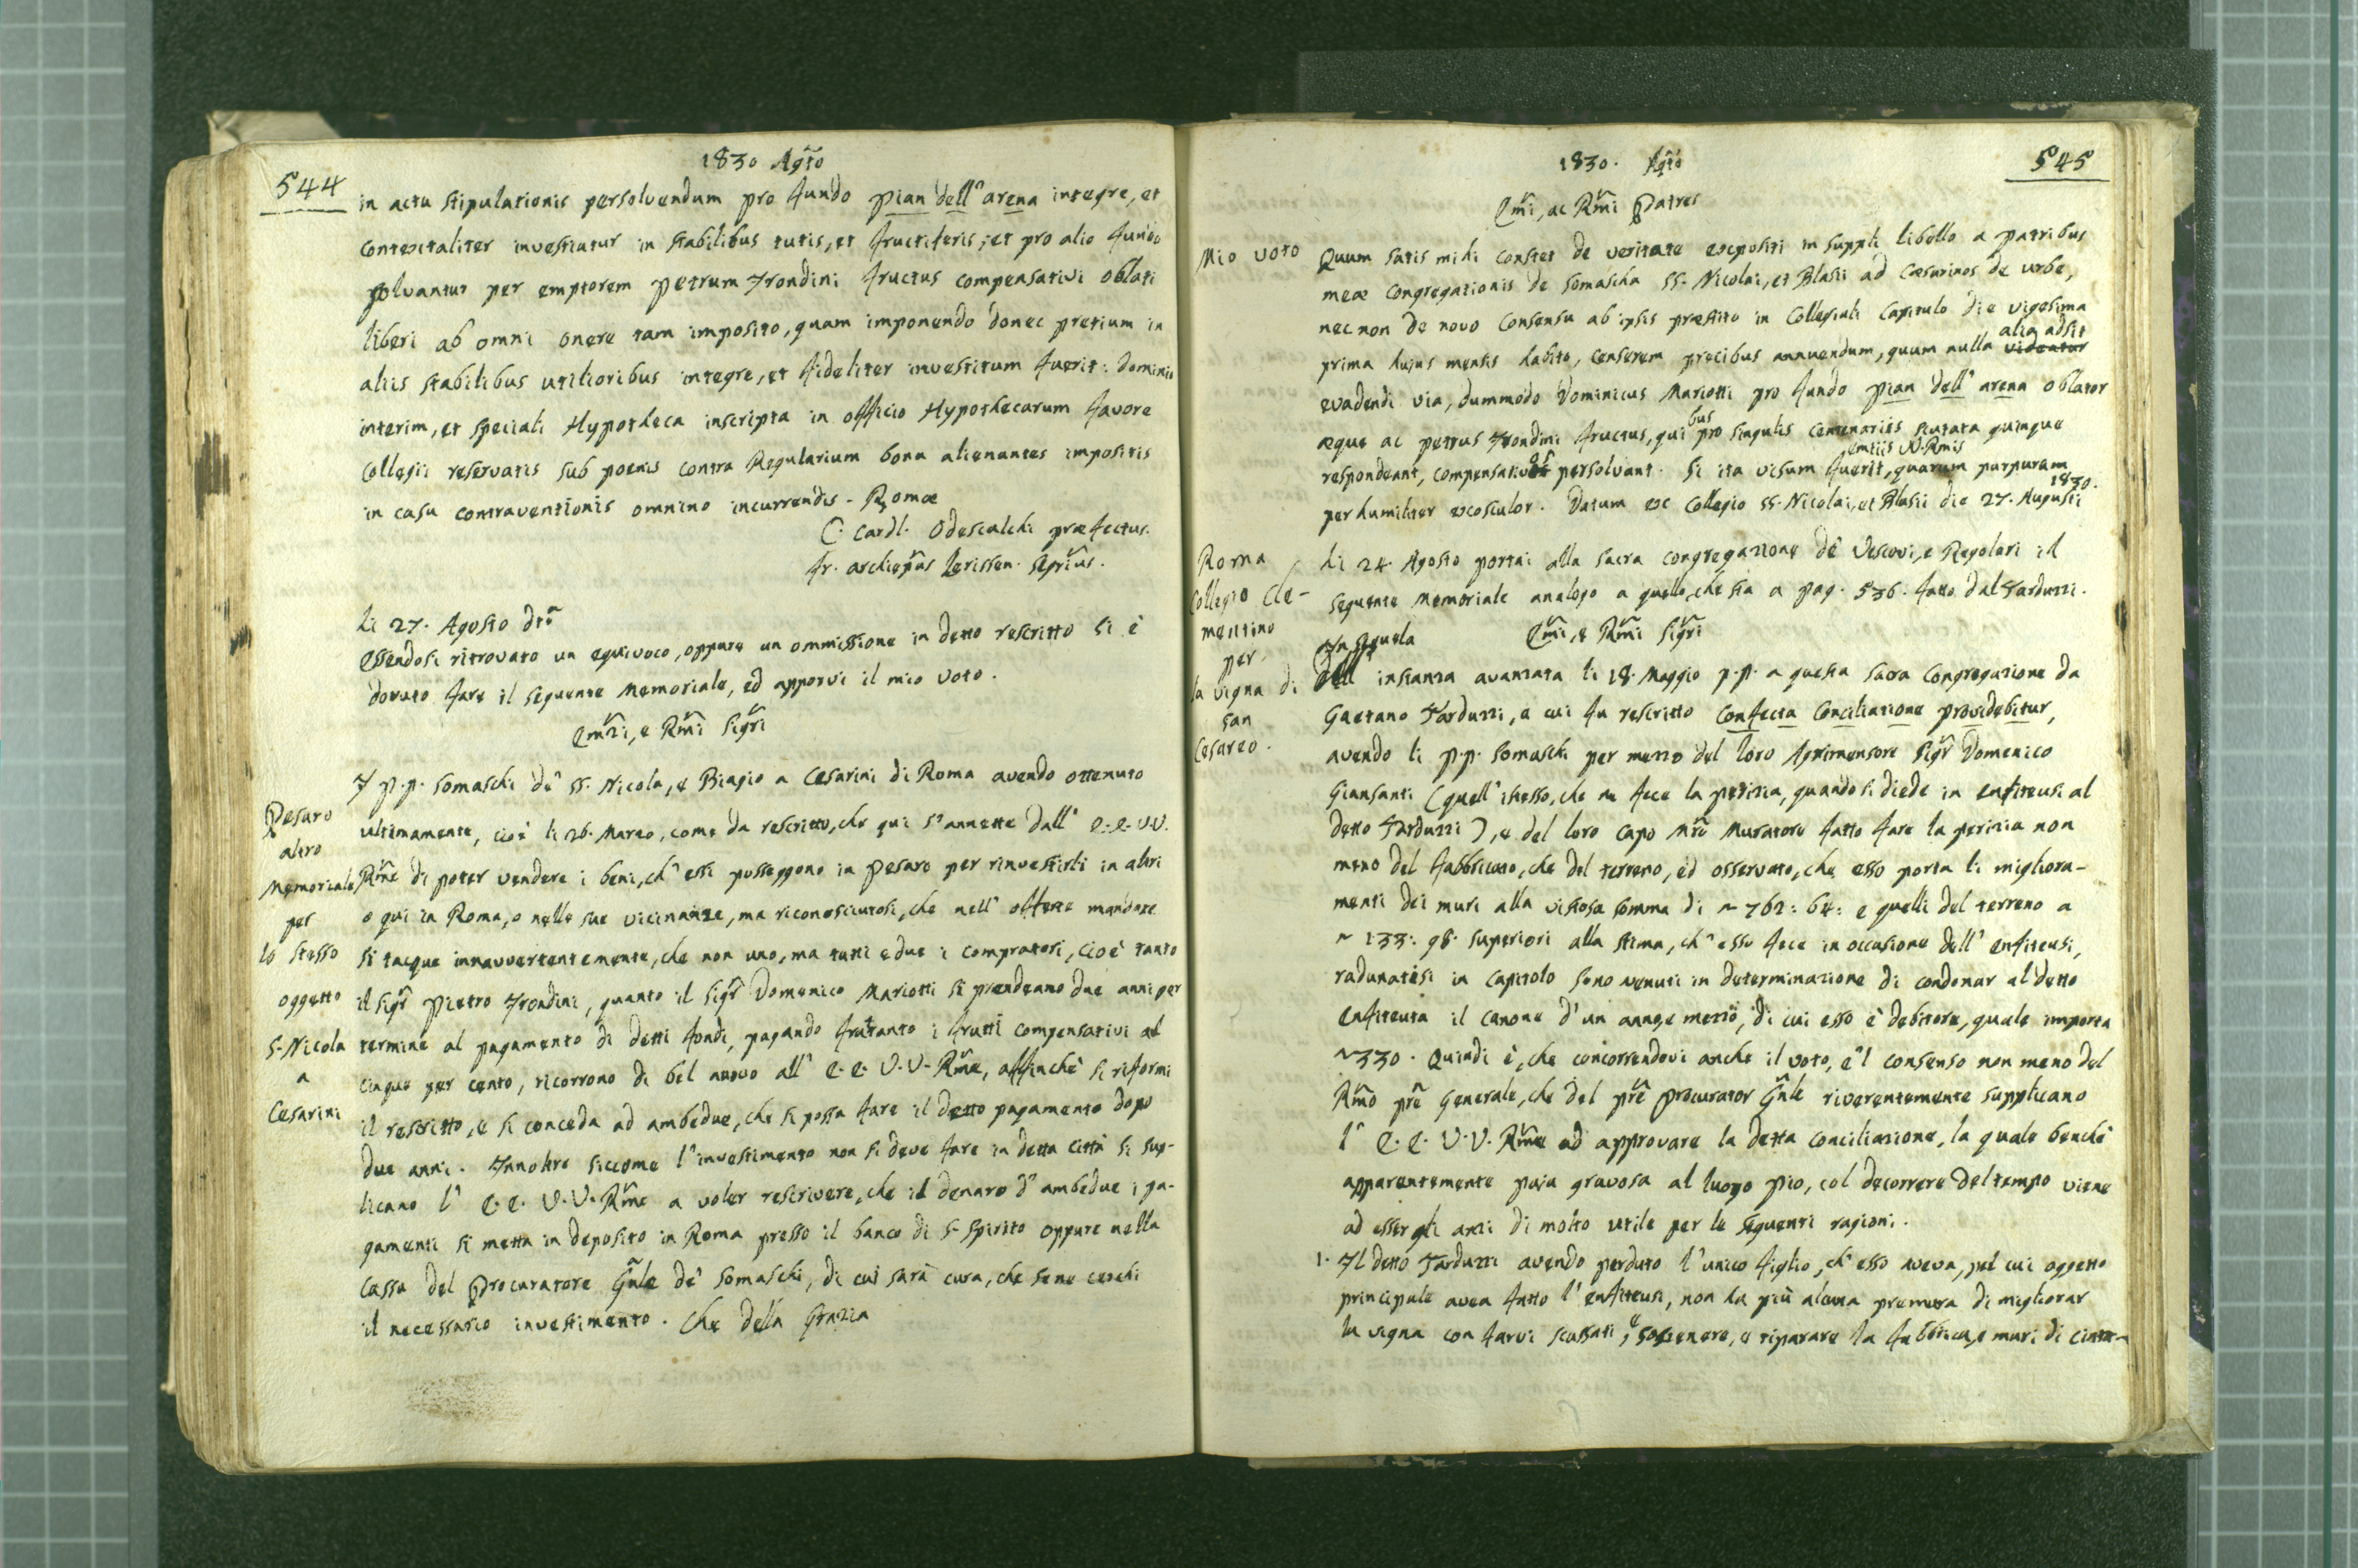 544
1830 Agto
in actu stipulationis persolvendum pro fundo Pian dell' arena integre, et
contextaliter investiatur in stabilibus tutis, et fructiferis, et pro alio fundo
solvantur per emptorem Petrum Frondini fructus compensativi oblati
liberi ab omni onere tam imposito, quam imponendo donec pretium in
aliis stabilibus utilioribus integre, et fideliter investitum fuerit: Dominio
interim, et speciali Hypotheca inscripta in officio Hypothecarum favore
Collegii reservatis sub poenis contra Regularium bona alienantes impositis
in casu contraventionis omnino incurrendis - Romæ
C. Cardl. Odescalchi præfectus.
Fr. archiepus Serius.
li 27. Agosto dto
Essendosi ritrovato un equivoco, oppure un ommissione in detto rescritto si è
dovuto fare il seguente Memoriale, ed apporvi il mio voto.
Emzi, e Rmi Sigri
Pesaro
altro
Memoriale
per
lo stesso
oggetto
S. Nicola
a
Cesarini
I P.P. Somaschi de' SS. Nicola, e Biagio a Cesarini di Roma avendo ottenuto
ultimamente, cioè li 26. Marzo, come da rescritto, che qui s'annette dall' E.E.V.V.
Rme di poter vendere i beni, ch' essi posseggono in Pesaro per rinvestirli in altri
o qui in Roma, o nelle sue vicinanze, ma riconosciutosi, che nell' offerte mandate
si tacque innavvertentemente, che non uno, ma tutti e due i compratori, cioè tanto
il Sigr Pietro Frondini, quanto il Sigr Domenico Mariotti si prendeano due anni per
termine al pagamento di detti fondi, pagando frattanto i frutti compensativi al
cinque per cento, ricorrono di bel nuovo all' E.E. V.V. Rme, affinchè si riformi
il rescritto, e si conceda ad ambedue, che si possa fare il detto pagamento dopo
due anni. Innoltre siccome l'investimento non si deve fare in detta città si sup-
licano l' E.E. V.V. Rme a voler rescrivere, che il denaro d' ambedue i pa-
gamenti si metta in deposito in Roma presso il banco di S. Spirito oppure nella
cassa del Procuratore Gnle de' Somaschi, di cui sarà cura, che sene cerchi
il necessario investimento. Che della Grazia
545
1830. Agto
Emi, ac Rmi Patres
Mio voto
Quum satis mihi constet de veritate expositi in suppli libello a Patribus
meæ Congregationis de Somascha SS. Nicolai, et Blasii ad Cæsarinos de urbe,
nec non de novo consensu ab ipsis præstito in Collegiali Capitulo die vigesima
prima hujus mensis habito, censerem precibus annuendum, quum nulla videatur alia adsit
evadendi via, dummodo Dominicus Mariotti pro fundo Pian dell' arena oblator
æque ac Petrus Frondini fructus, quibus pro singulis centenariis scutata quinque
respondeant, compensativos persolvant. Si ita visum fuerit, entiis V. Rmis quarum purpuram
perhumiliter exosculor. Datum ex Collegio SS. Nicolai, et Blasii die 27. Augusti 1830.
Roma
Collegio Cle-
mentino
per
la vigna di
san
Cesareo.
Li 24 Agosto portai alla sacra congregazione de' Vescovi, e Regolari il
seguente Memoriale analogo a quello, che sta a pag. 536. fatto dal Tarduzzi.
Emi, e Rmi Sigri
In sequela
dell' instanza avanzata li 18. Maggio p.p. a questa sacra Congregazione da
Gaetano Tarduzzi, a cui fu rescritto Confecta Conciliatione providebitur,
avendo li P.P. Somaschi per mezzo del loro Agrimensore Sigr Domenico
Giansanti (quell' istesso, che ne fece la perizia, quando si diede in enfiteusi al
detto Tarduzzi), e del loro capo Mro Muratore fatto fare la perizia non
meno del fabbricato, che del terreno, ed osservato, che esso porta li migliora-
menti dei muri alla vistosa somma di ~ 762: 64: e quelli del terreno a
~ 133: 98. superiori alla stima, ch' esso fece in occasione dell' enfiteusi,
radunatisi in capitolo sono venuti in determinazione di condonar al detto
enfiteuta il canone d'un anno, e mezzo, di cui esso è debitore, quale importa
~330. Quindi è, che concorrendovi anche il voto, e'l consenso non meno del
Rmo pre Generale, che del pre Procurator Gnle riverentemente supplicano
l' E.E. V.V. Rme ad approvare la detta conciliazione, la quale benchè
apparentemente paja gravosa al luogo Pio, col decorrere del tempo viene
ad essergli anzi di molto utile per le seguenti ragioni.
1. Il detto Tarduzzi avendo perduto l'unico figlio, ch' esso aveva, pel cui oggetto
principale avea fatto l'enfiteusi, non ha più alcuna premura di migliorar
la vigna con farvi scassati, e sostenere, e riparare la fabbrica, e muri di cinta-